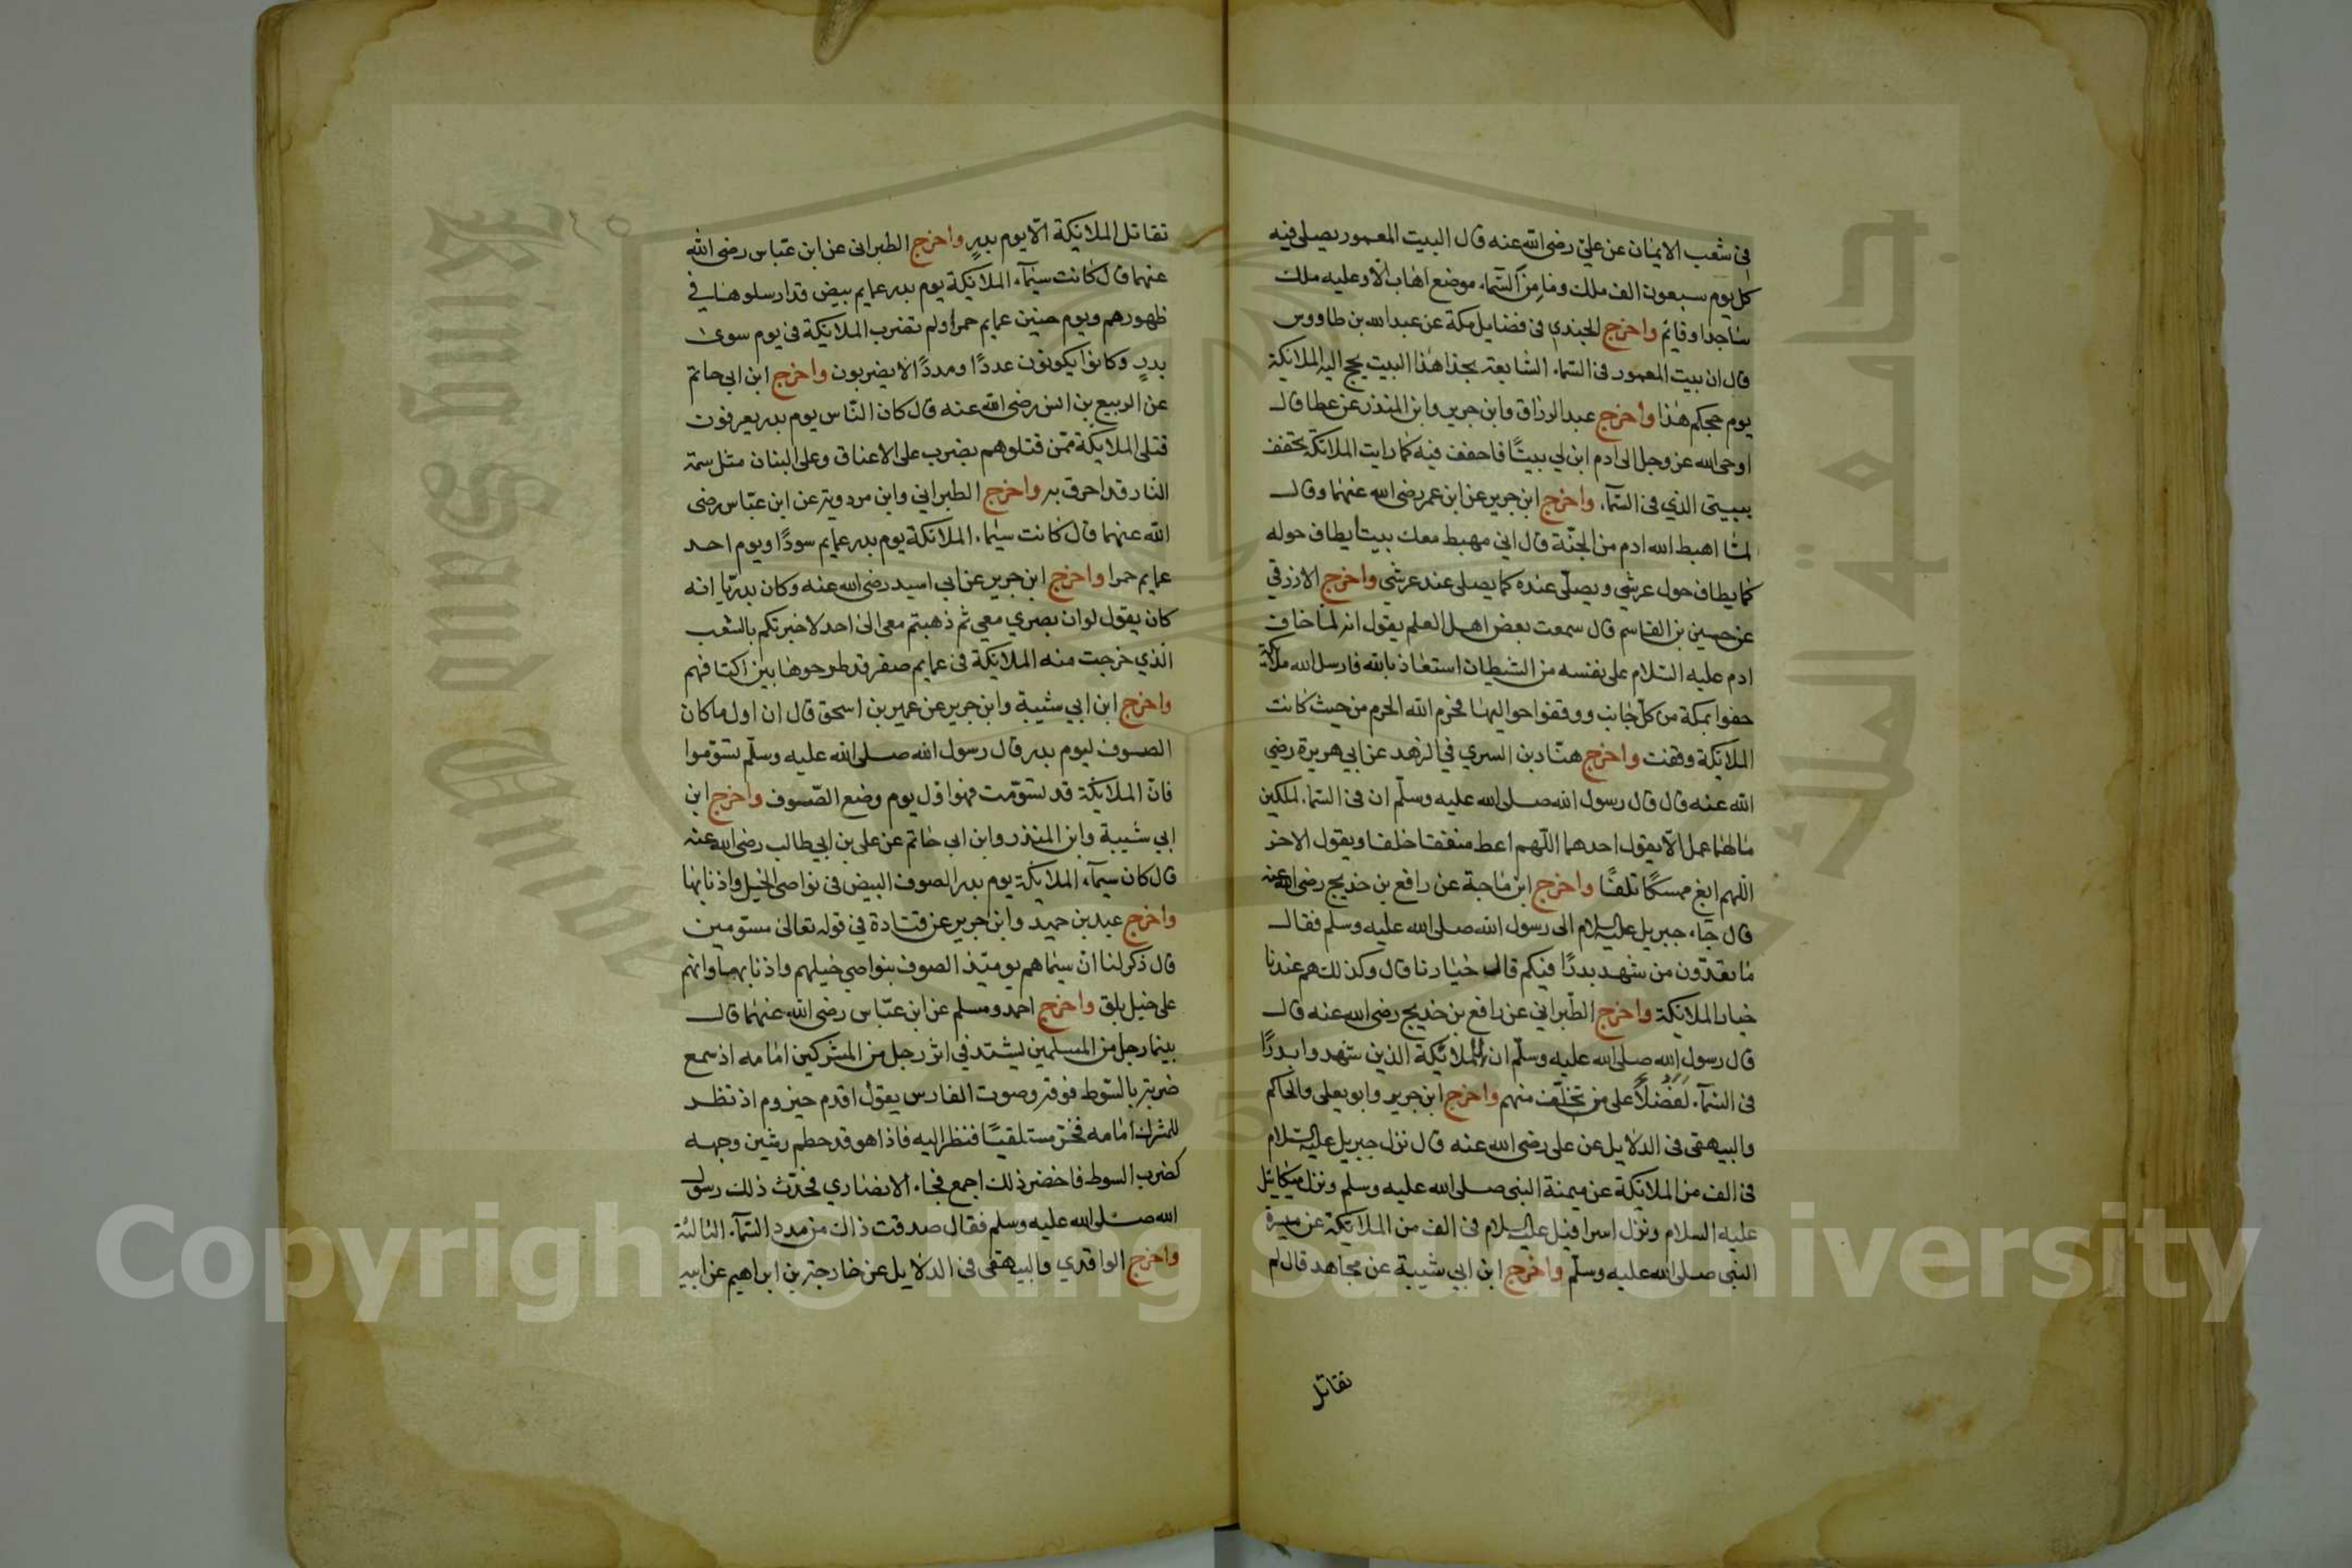 في شعب الايمان عن علي رضى الله عنه قال البيت المعمور يصلى فيه
كل يوم سبعون الف ملك وما من السماء موضع اهاب الا وعليه ملك
ساجدا وقايم واخرج الجندي فى فضايل مكة عن عبدالله بن طاووس
قال ان بيت المعمور فى السماء السابعة بحذا هذا البيت يحج اليه الملائكة
يوم حجكم هذا واخرج عبد الرزاق وابن جرير وابن المنذر عن عطا قال
اوحى الله عز وجل الى ادم ابن لي بيتًا فاحفف فيه كما رايت الملائكة تحفف
ببيتي الذي فى السماء واخرج ابن جرير عن ابن عمر رضى الله عنهما وقال
لما اهبط الله ادم من الجنة قال اني مهبط معك بيتا يطاف حوله
كما يطاف حول عرشي ويصلى عنده كما يصلى عند عرشي واخرج الازرقي
عن حسين بن القاسم قال سمعت بعض اهل العلم يقول انه لما خاف
ادم عليه السلام على نفسه من الشيطان استعاذ بالله فارسل الله ملائكة
حفوا بمكة من كل جانب ووقفوا حواليها فحرم الله الحرم من حيث كانت
الملايكة وقفت واخرج هناد بن السري في الزهد عن ابي هريرة رضي
الله عنه قال قال رسول الله صلى الله عليه وسلم ان فى السماء لملكين
مالهما عمل الا يقول احدهما اللهم اعط منفقا خلفا ويقول الاخر
اللهم ابغ ممسكا تلفًا واخرج ابن ماجة عن رافع بن خديج رضى الله عنه
قال جاء جبريل عليه السلام الى رسول الله صلى الله عليه وسلم فقال
ما تعدّون من شهد بدرًا فيكم قال خيارنا قال وكذلك هم عندنا
خيار الملائكة واخرج الطبراني عن رافع بن خديج رضى الله عنه قال
قال رسول الله صلى الله عليه وسلم ان للملائكة الذين شهدوا بدرًا
فى السماء لَفَضْلاً على من تخلّف منهم واخرج ابن جرير وابو يعلى والحاكم
والبيهقى فى الدلايل عن على رضى الله عنه قال نزل جبريل عليه السلام
فى الف من الملايكة عن ميمنة النبى صلى الله عليه وسلم ونزل ميكائيل
عليه السلام ونزل اسرافيل عليه السلام فى الف من الملايكة عن ميسرة
النبى صلى الله عليه وسلم واخرج ابن ابي شيبة عن مجاهد قال لم
تقاتل
٤٥
تقاتل الملايكة الا يوم بدرٍ واخرج الطبرانى عن ابن عبّاس رضى الله
عنهما قال كانت سيماء الملايكة يوم بدر عمايم بيض قد ارسلوها في
ظهورهم ويوم حنين عمايم حمرا ولم تضرب الملايكة فى يوم سوى
بدرٍ وكانوا يكونون عددًا ومددًا لا يضربون واخرج ابن ابي حاتم
عن الربيع بن انس رضى الله عنه قال كان النّاس يوم بدر يعرفون
قتلى الملايكة ممّن قتلوهم بضرب على الاعناق وعلى البنان مثل سمة
النار قد احرق به واخرج الطبراني وابن مردويه عن ابن عبّاس رضى
الله عنهما قال كانت سيماء الملائكة يوم بدر عمايم سودًا ويوم احد
عمايم حمرا واخرج ابن جرير عن ابي اسيد رضى الله عنه وكان بدريّا انه
كان يقول لو ان بصري معي ثم ذهبتم معى الى احد لاخبرتكم بالشعب
الذي خرجت منه الملائكة فى عمايم صفر قد طرحوها بين اكتافهم
واخرج ابن ابي شيبة وابن جرير عن عمير بن اسحق قال ان اول ما كان
الصوف ليوم بدر قال رسول الله صلى الله عليه وسلّم تسوّموا
فانّ الملايكة قد تسوّمت فهو اوّل يوم وضع الصّوف واخرج ابن
ابي شيبة وابن المنذر وابن ابى حاتم عن على بن ابي طالب رضى الله عنه
قال كان سيماء الملايكة يوم بدر الصوف البيض فى نواصى الخيل واذنابها
واخرج عبد بن حميد وابن جرير عن قتادة في قوله تعالى مسوّمين
قال ذكر لنا ان سيماهم يومئذ الصوف بنواصي خيلهم واذنابها وانهم
على خيل بلق واخرج احمد ومسلم عن ابن عبّاس رضى الله عنهما قال
بينما رجل من المسلمين يشتد في اثر رجل من المشركين امامه اذ سمع
ضربة بالسّوط فوقه وصوت الفارس يقول اقدم حيزوم اذ نظر
للمشرك امامه فخر مستلقيًا فنظر اليه فاذا هو قد حطم وشين وجهه
كضرب السوط فاخضر ذلك اجمع فجاء الانصاري فحدّث ذلك رسول
الله صلى الله عليه وسلم فقال صدقت ذاك من مدد السماء الثالثة
واخرج الواقدي والبيهقي فى الدلايل عن خارجة بن ابراهيم عن ابيه
جامعة الملك
King Saud University
Copyright © King Saud University